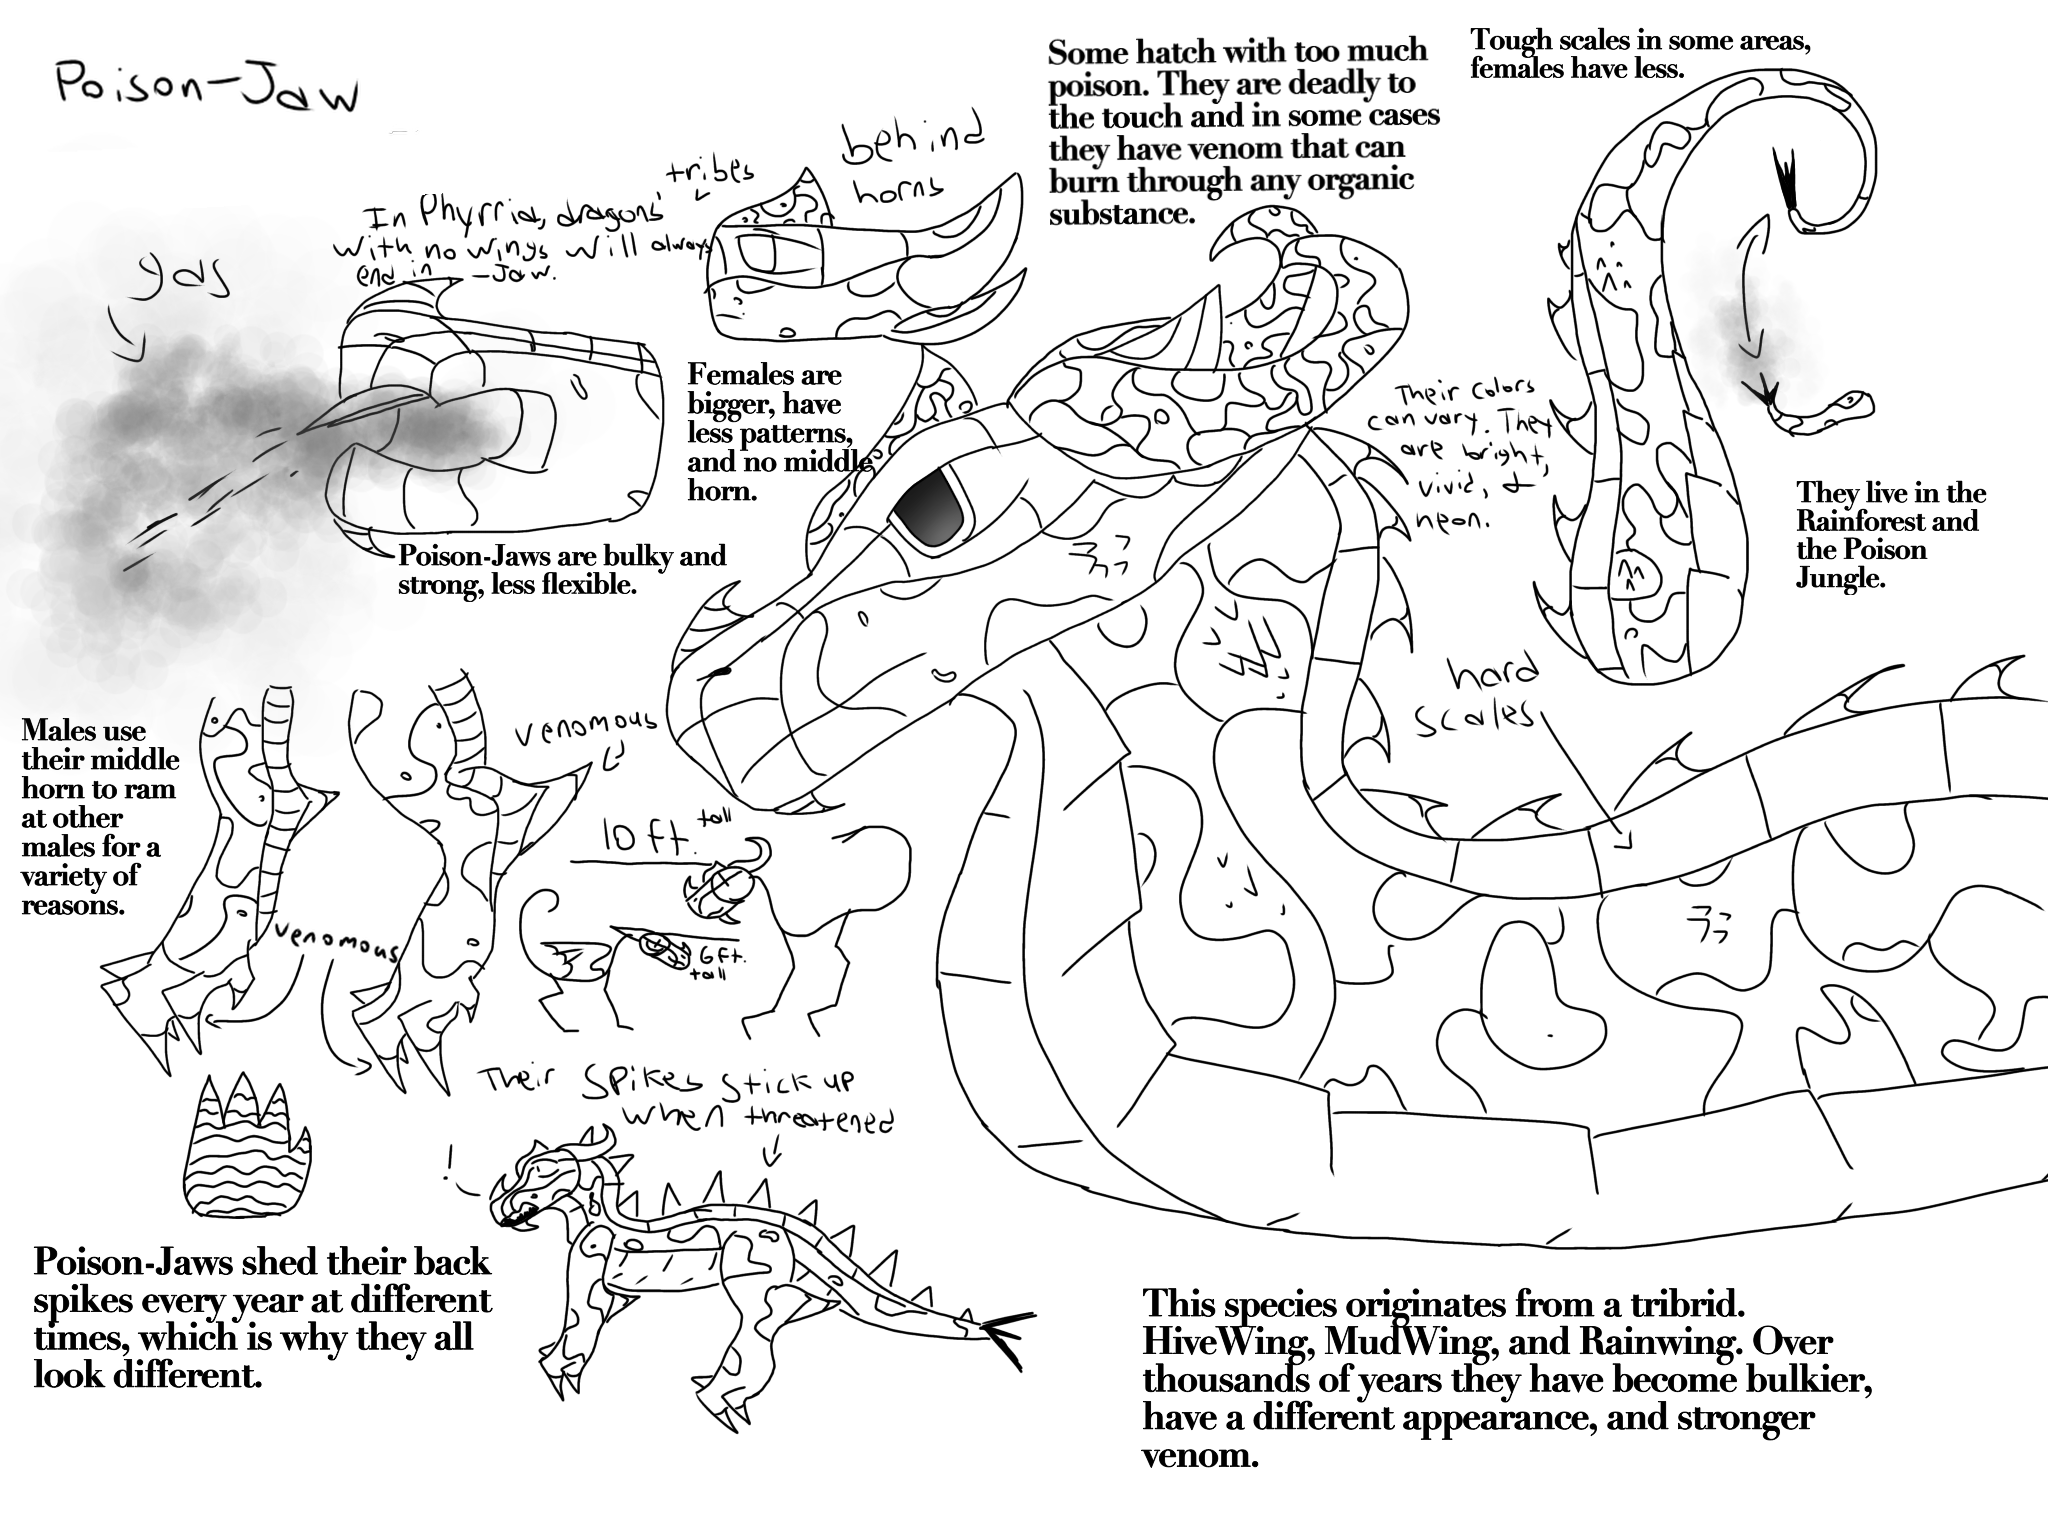 Poison-Jaw
In Phyrria, dragons' tribes
with no wings will always
end in -Jaw.
gas
behind
horns
Some hatch with too much
poison. They are deadly to
the touch and in some cases
they have venom that can
burn through any organic
substance.
Tough scales in some areas,
females have less.
Females are
bigger, have
less patterns,
and no middle
horn.
Their colors
can vary. They
are bright,
vivid, &
neon.
They live in the
Rainforest and
the Poison
Jungle.
Poison-Jaws are bulky and
strong, less flexible.
hard
scales
Males use
their middle
horn to ram
at other
males for a
variety of
reasons.
venomous
venomous
10ft. tall
6ft.
tall
Their spikes stick up
when threatened
!
Poison-Jaws shed their back
spikes every year at different
times, which is why they all
look different.
This species originates from a tribrid.
HiveWing, MudWing, and Rainwing. Over
thousands of years they have become bulkier,
have a different appearance, and stronger
venom.